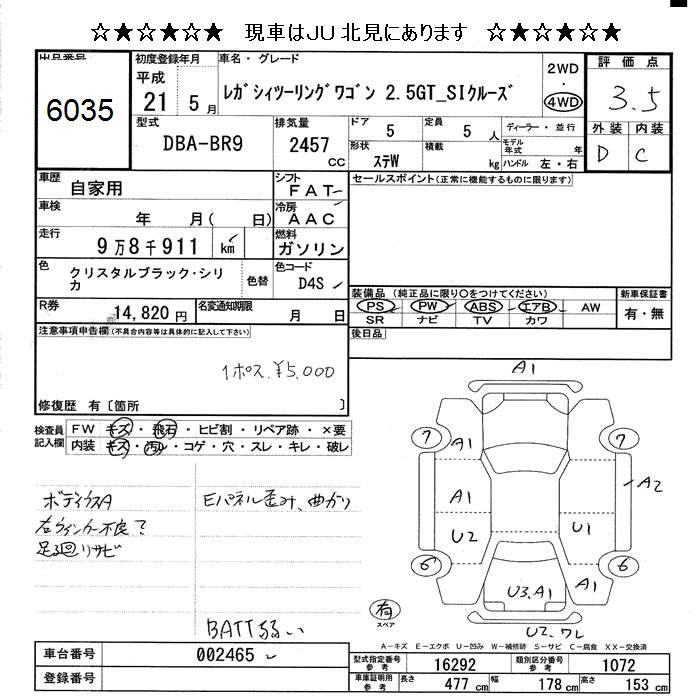 ☆★☆★☆★ 現車はJU北見にあります ☆★☆★☆★
出品番号 初度登録年月 車名・グレード 2WD 評価点
6035 平成 21年 5月 レガシィツーリングワゴン 2.5GT_SIクルーズ ・ 4WD 3.5
型式 排気量 ドア 5 定員 5人 ディーラー・並行 外装 内装
DBA-BR9 2457cc 形状 ステW 積載 kg モデル年式 年 D C
ハンドル 左・右
車歴 自家用 シフト FAT セールスポイント(正常に機能するものに限ります)
車検 年 月( 日) 冷房 AAC
走行 9万8千911 km 燃料 ガソリン
色 クリスタルブラック・シリカ 色替 色コード D4S 装備品(純正品に限り○をつけてください) 新車保証書
PS PW ABS エアB AW 有・無
R券 14,820円 名変通知期限 月 日 SR ナビ TV カワ
注意事項申告欄(不具合内容等は具体的に記入して下さい) 後日品
1ポス ¥5,000
修復歴 有〔箇所 〕
検査員記入欄 FW キズ・飛石・ヒビ割・リペア跡・×要
内装 キズ・汚レ・コゲ・穴・スレ・キレ・破レ
ボディウスA Eパネル歪み、曲がり
右ウィンカー不良?
足廻リサビ
BATT弱い
A1
7 A1 7
A1 A2
U2 U1
6 A1 6
U3.A1
有 スペア
U2.ワレ
A-キズ E-エクボ U-凹み W-補修跡 S-サビ C-腐食 XX-交換済
車台番号 002465 型式指定番号 参考 16292 類別区分番号 参考 1072
登録番号 車庫証明用 参考 長さ 477cm 幅 178cm 高さ 153cm